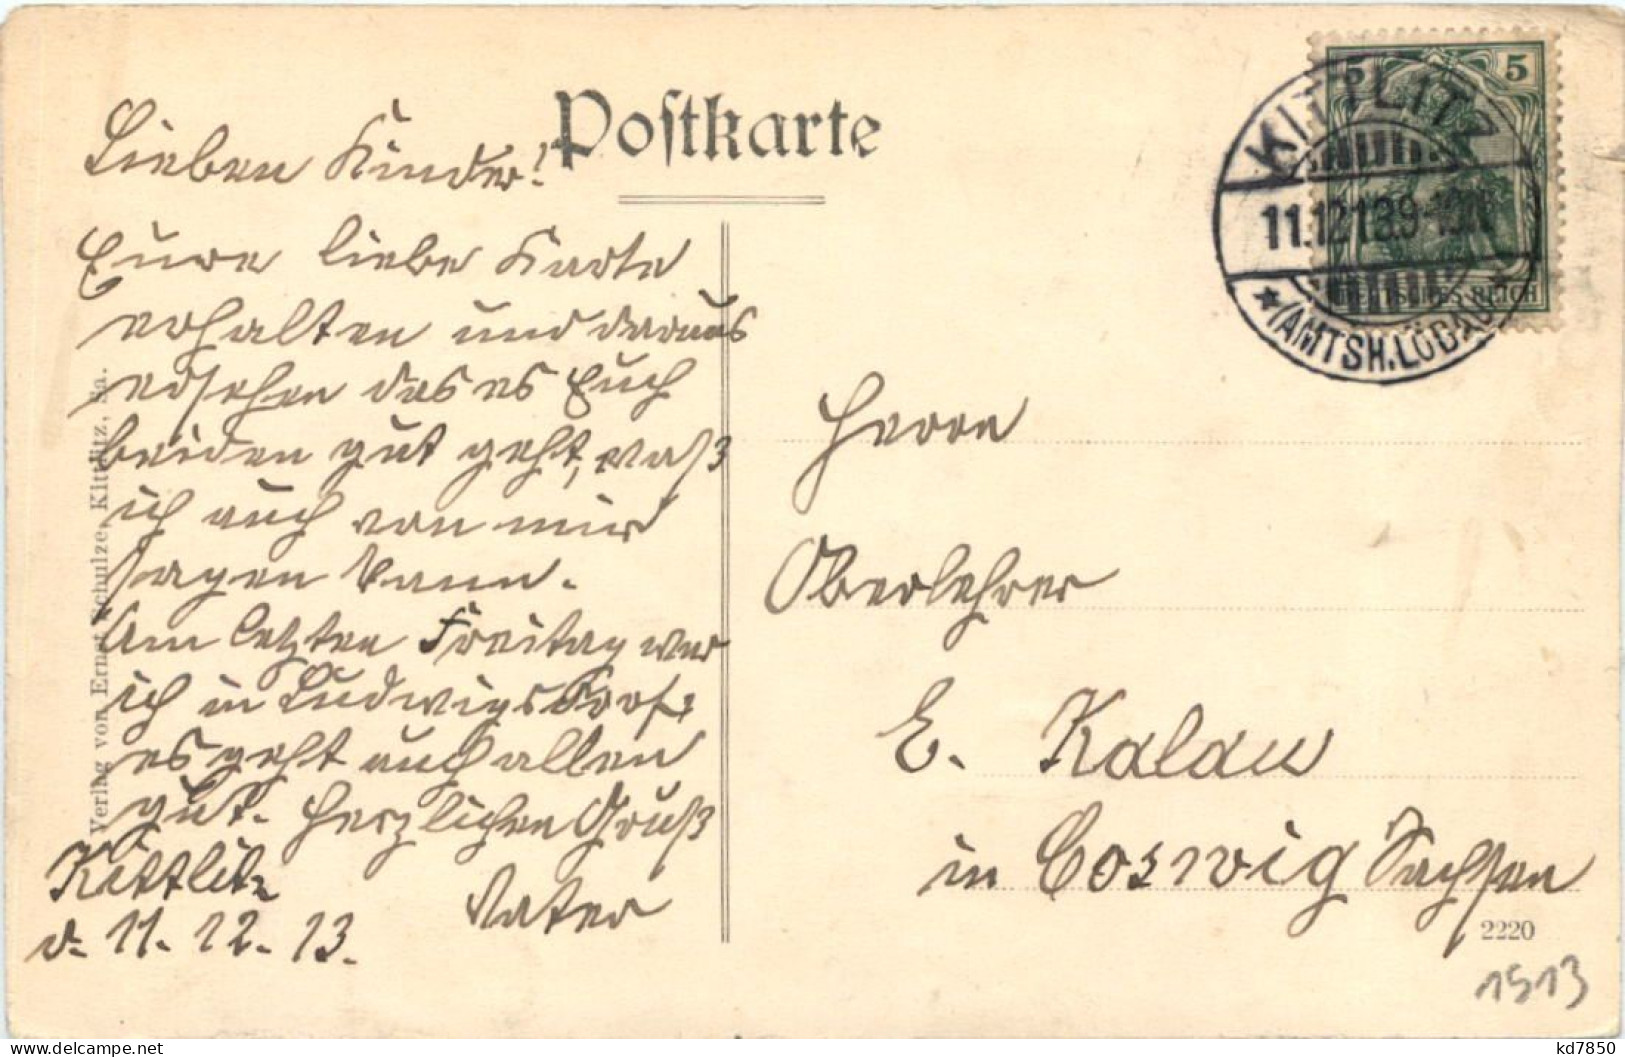 Postkarte
Lieben Kinder!
Eure liebe Karte
erhalten und daraus
ersehen das es Euch
beiden gut geht, waß
ich auch von mir
sagen kann.
Am letzten Freitag war
ich in Ludwigsdorf,
es geht auch allen
gut. Herzlichen Gruß
Kittlitz
Vater
d. 11. 12. 13.
Verlag von Ernst Schulze, Kittlitz, Sa.
5 5
DEUTSCHES REICH
KITTLITZ
11.12.13.9-10V
(AMTSH.LÖBAU)
Herrn
Oberlehrer
E. Kalau
in Coswig Sachsen
2220
1513
kd7850
www.delcampe.net